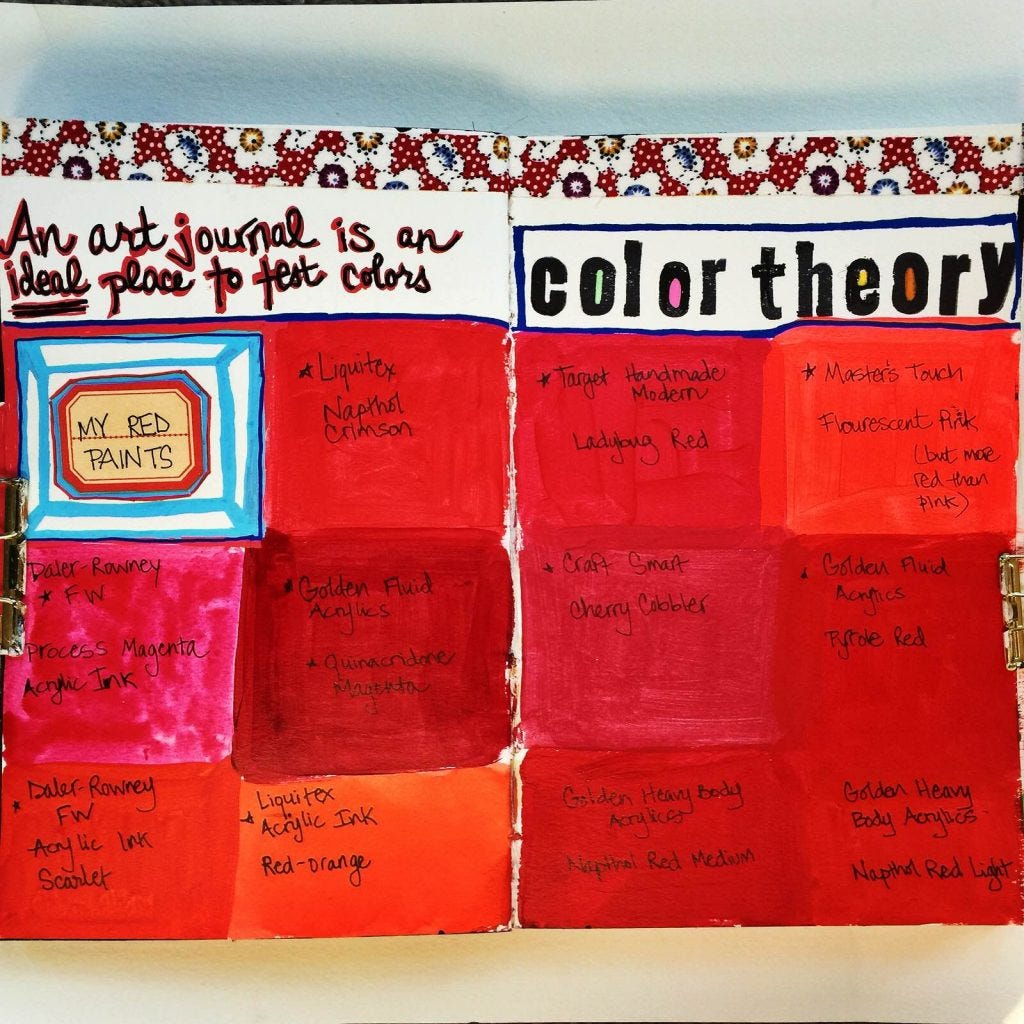 An art journal is an
ideal place to test colors
MY RED
PAINTS
★ Liquitex
Napthol
Crimson
Daler-Rowney
★ FW
Process Magenta
Acrylic Ink
★ Golden Fluid
Acrylics
★ Quinacridone
Magenta
Daler-Rowney
★ FW
Acrylic Ink
Scarlet
Liquitex
★ Acrylic Ink
Red-orange
color theory
★ Target Handmade
Modern
Ladybug Red
★ Master's Touch
Flourescent Pink
(but more
red than
pink)
★ Craft Smart
Cherry Cobbler
★ Golden Fluid
Acrylics
Pyrole Red
Golden Heavy Body
Acrylics
Napthol Red Medium
Golden Heavy
Body Acrylics
Napthol Red Light